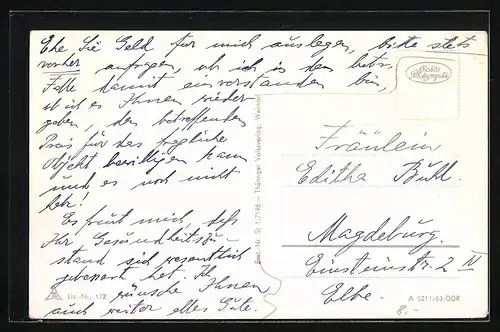 Ehe Sie Geld für mich auslegen, bitte stets
vorher anfragen, ob ich in dem betr.
Falle damit einverstanden bin,
ob ich es Ihnen wieder-
geben, den betreffenden
Preis für das fragliche
Objekt bewilligen kann
und es noch nicht
habe!
Es freut mich, daß
Ihr Gesundheitszu-
stand sich wesentlich
gebessert hat. Ich
wünsche Ihnen
auch weiter alles Gute.
Liz.-Nr. 172
Best.-Nr. St 1/7198 — Thüringer Volksverlag, Weimar
Echte Photographie
Fräulein
Editha Buhl.
Magdeburg.
Einsteinstr. 2 III
Elbe.
A 5211/53/DDR
8.-